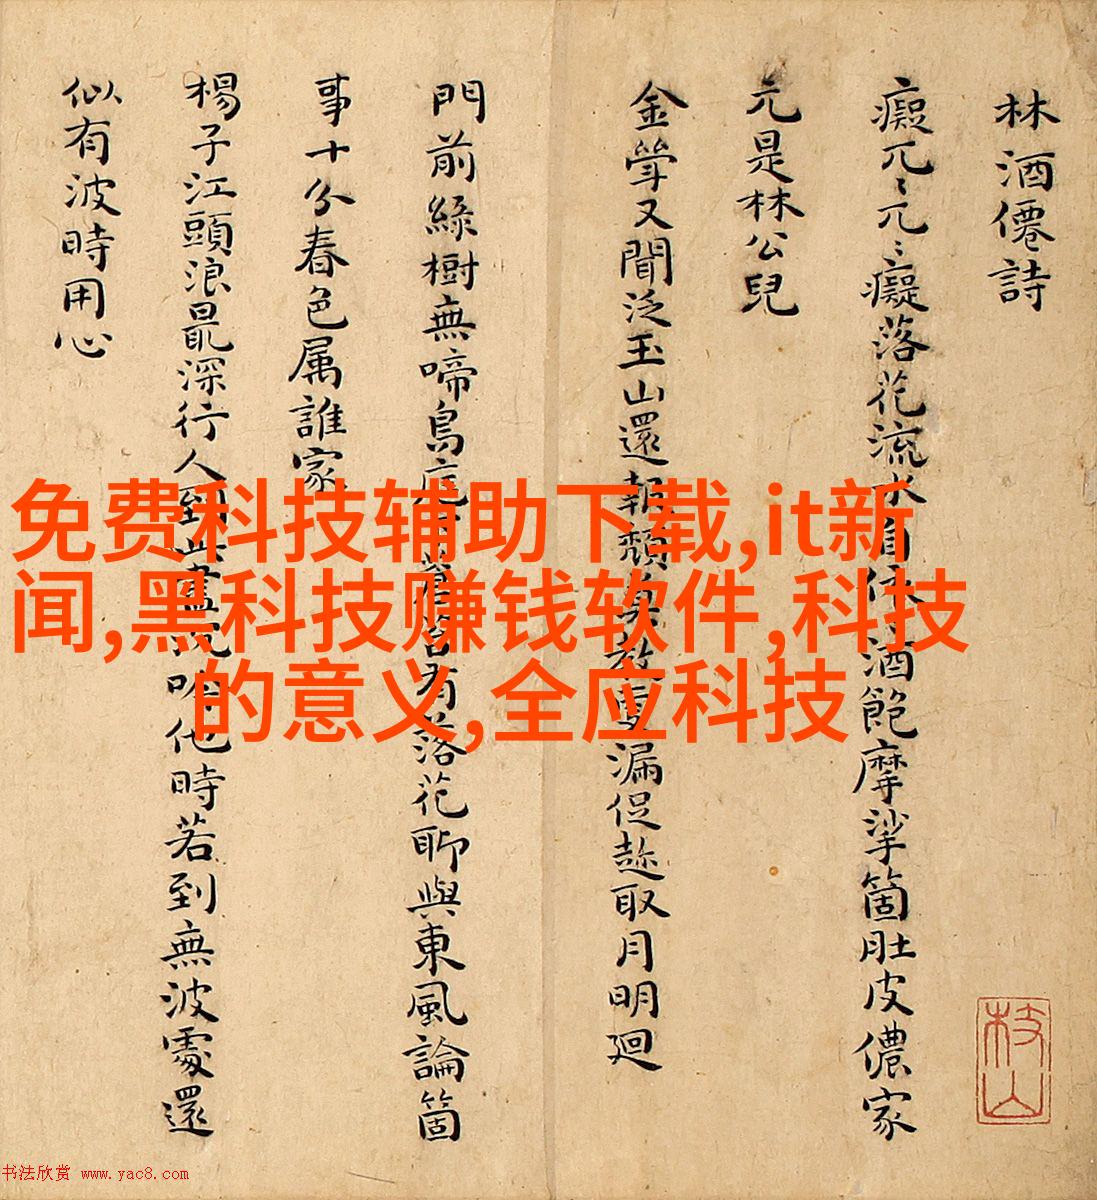 林酒僊詩
癡兀〻兀〻癡落花流水自依酒飽摩挲箇肚皮儂家
元是林公兒
金斝又聞泛玉山還報頹莫教更漏促趂取月明廻
門前綠樹無啼鳥庭下蒼苔有落花聊與東風論箇
事十分春色属誰家
楊子江頭浪最深行人到此盡沉吟他時若到無波處還
似有波時用心
枝山
免费科技辅助下载,it新
闻,黑科技赚钱软件,科技
的意义,全应科技
书法欣赏 www.yac8.com